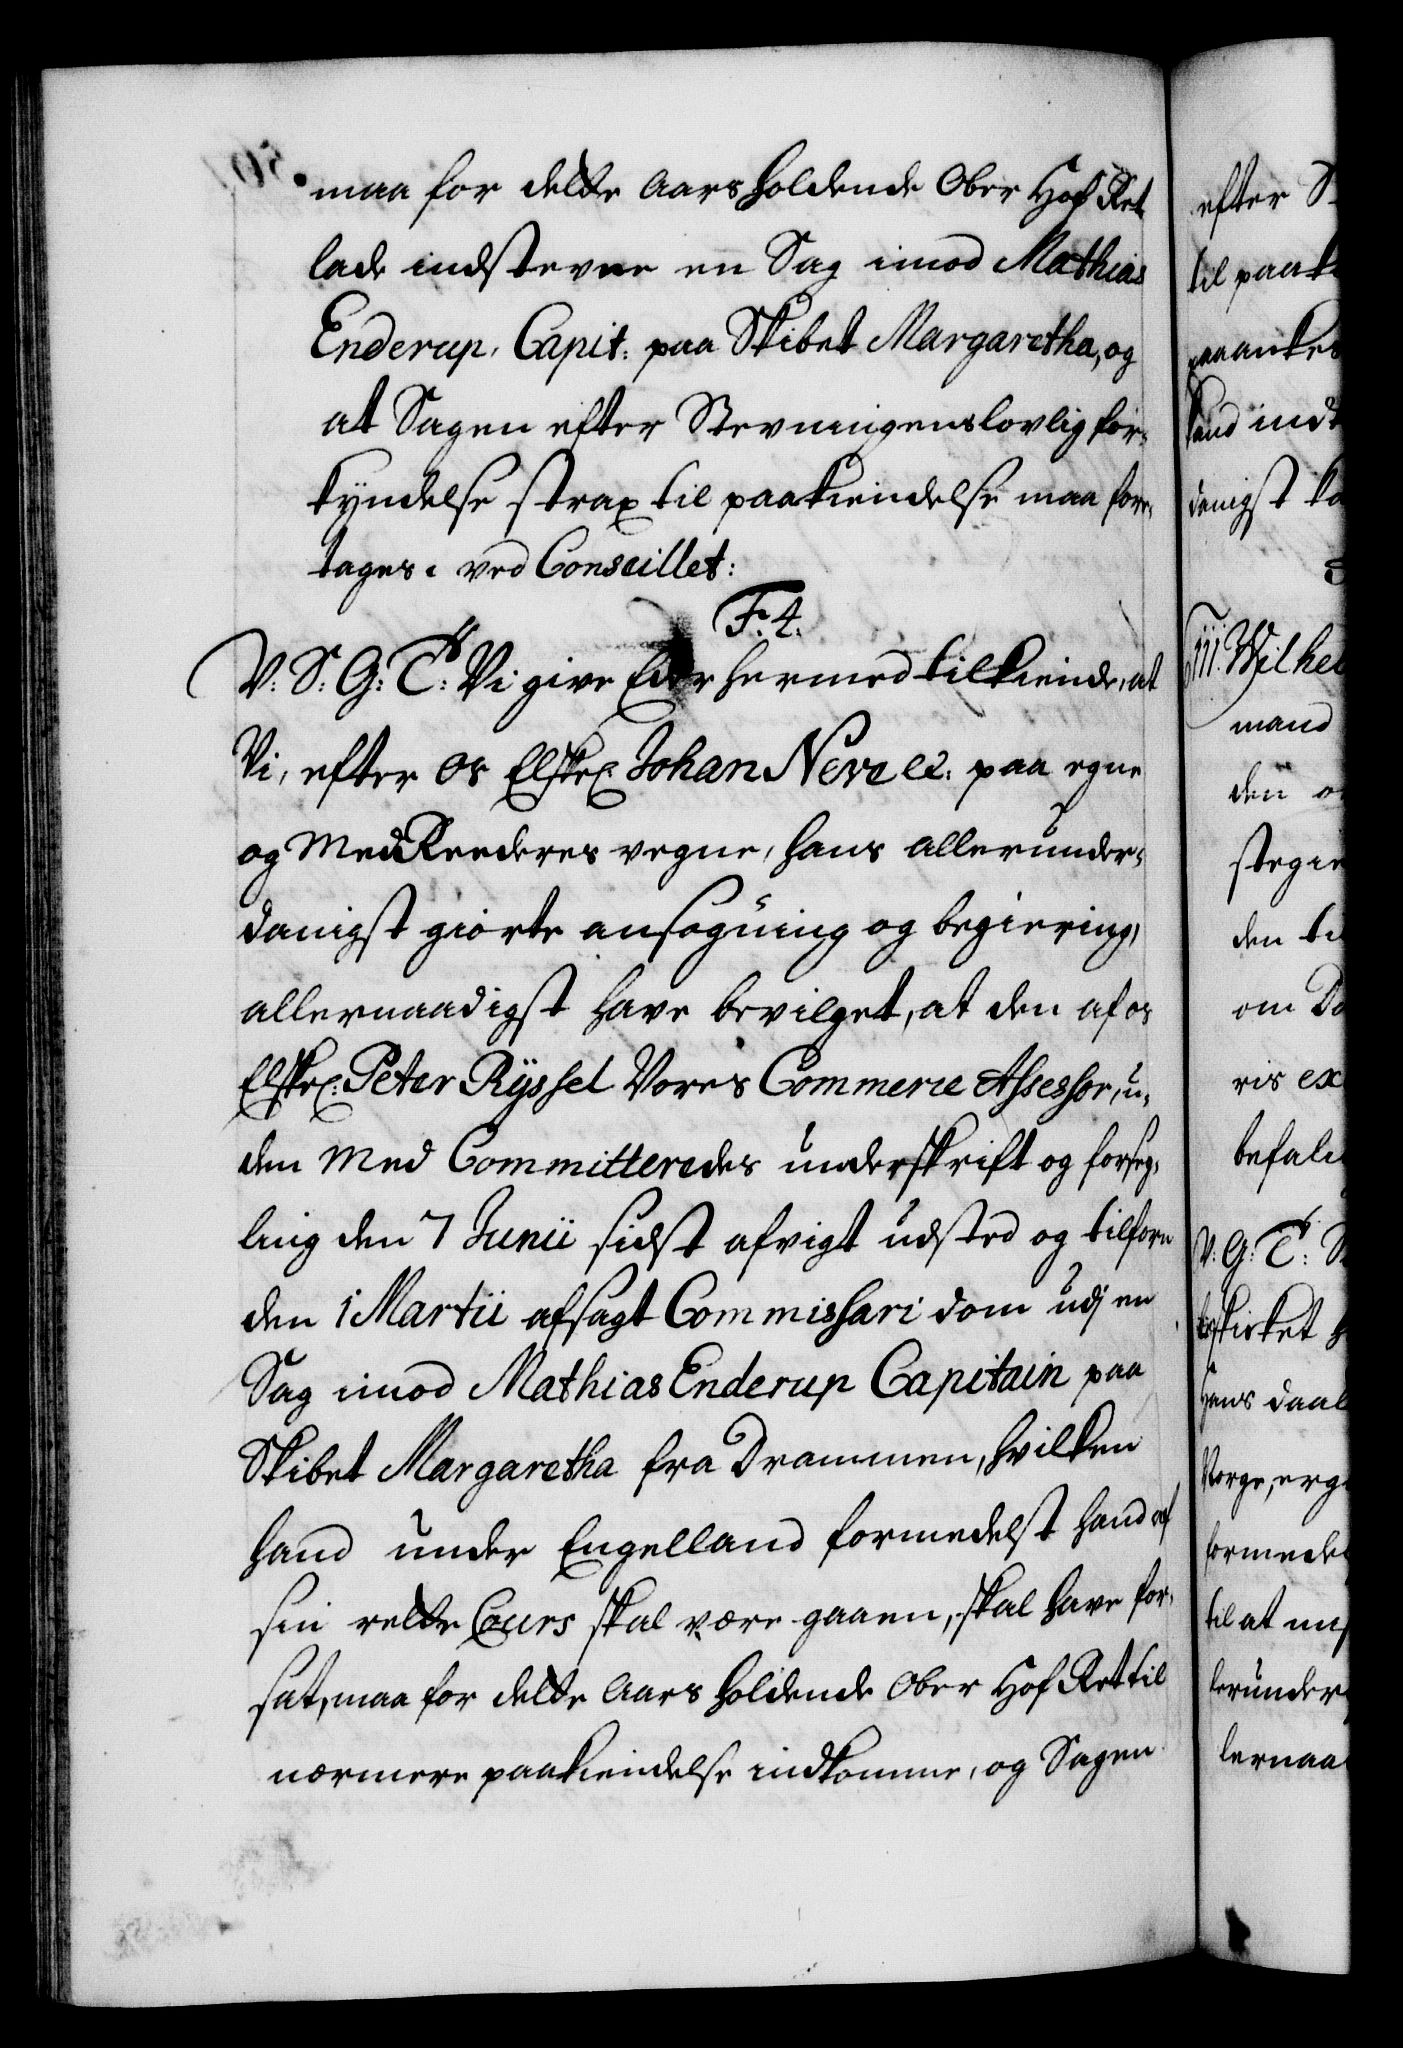 maa for dette Aars holdende Ober Hof Ret
lade indstevne en Sag imod Mathias
Enderup, Capit: paa Skibet Margaretha, og
at Sagen efter Stevningens lovlig for-
kyndelse strax til paakiendelse maa fore-
tages. ved Conseillet:
F. 4.
V: S: G: T: Vi give Eder hermed tilkiende, at
Vi, efter os Elskel: Johan Neve ec: paa egne
og MedReederes vegne, hans allerunder-
danigst giorte ansøgning og begiering,
allernaadigst have bevilget, at den af os
Elskel: Peter Ryssel Vores Commerce Assessor, u-
den Med Committeredes underskrift og forseg-
ling den 7 Junii sidst afvigt udsted og tilforn
den 1 Martii afsagt Commissari dom udj en
Sag imod Mathias Enderup Capitain paa
Skibet Margaretha fra Drammen, hvilken
hand under Engelland formedelst hand af
sin rette Cours skal være gaaen, skal have for-
sat, maa for dette Aars holdende Ober Hof Ret til
nærmere paakiendelse indkomme, og Sagen
efter
til paak
paaankes
kand indt
danigst
Wilhel
mand
den
stegie
den ti
om Do
ris ex
befale
V: G: T:
hans daal
Norge, erg
formede
til at
lerunder
lernaa